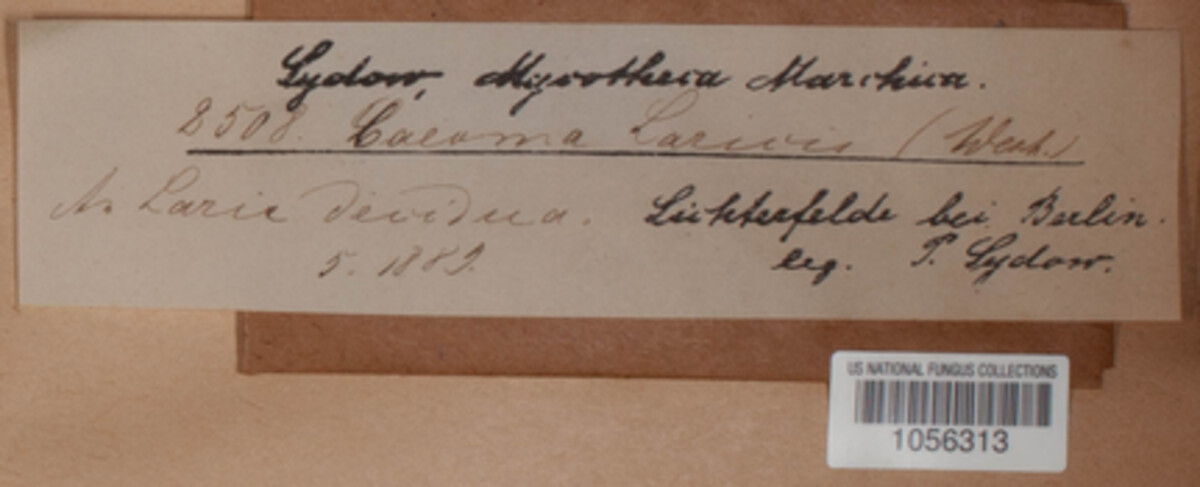 Sydow, Mycotheca Marchica.
2508. Caeoma Laricis (West.)
An Larix decidua. Lichterfelde bei Berlin.
5. 1889. leg. P. Sydow.
US NATIONAL FUNGUS COLLECTIONS
1056313